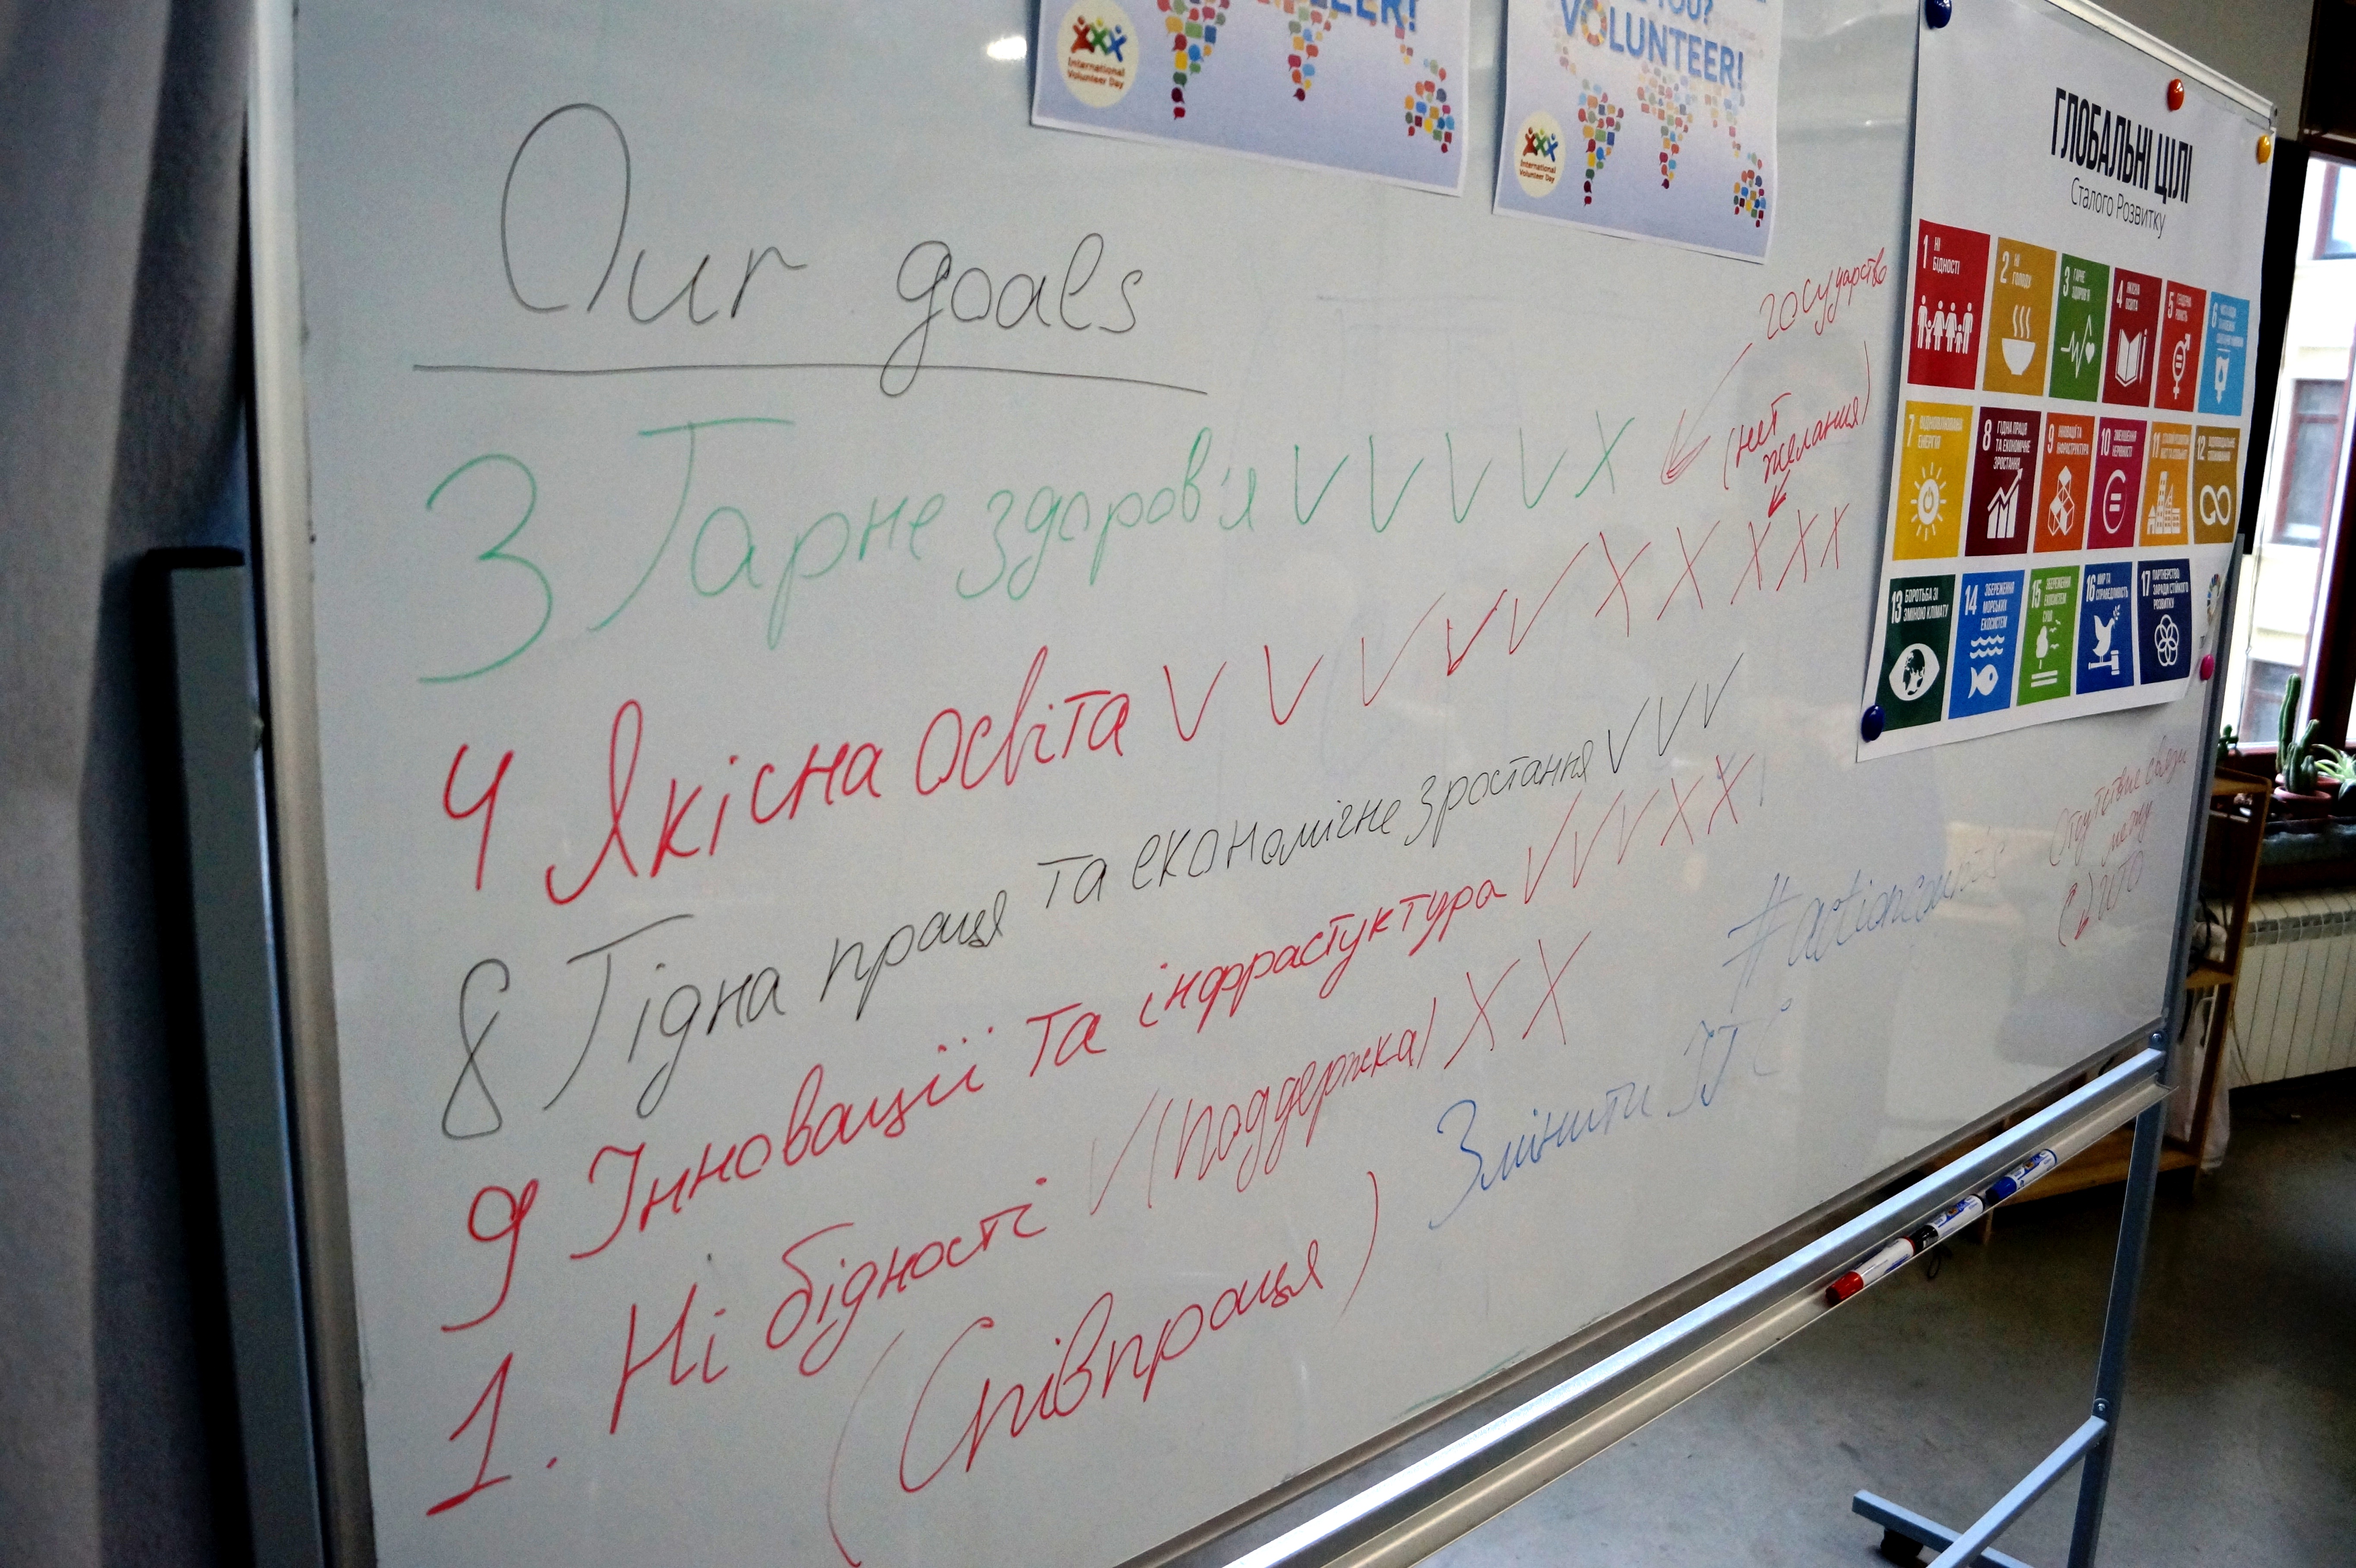 VOLUNTEER!
International
Volunteer Day
YOU?
VOLUNTEER!
International
Volunteer Day
ГЛОБАЛЬНІ ЦІЛІ
Сталого Розвитку
1 НІ БІДНОСТІ
2 НІ ГОЛОДУ
3 ГАРНЕ ЗДОРОВ'Я
4 ЯКІСНА ОСВІТА
5 ГЕНДЕРНА РІВНІСТЬ
6
7 ВІДНОВЛЮВАНА ЕНЕРГІЯ
8 ГІДНА ПРАЦЯ ТА ЕКОНОМІЧНЕ ЗРОСТАННЯ
9 ІННОВАЦІЇ ТА ІНФРАСТРУКТУРА
10 ЗМЕНШЕННЯ НЕРІВНОСТІ
11
12 ВІДПОВІДАЛЬНЕ СПОЖИВАННЯ
13 БОРОТЬБА ЗІ ЗМІНОЮ КЛІМАТУ
14 ЗБЕРЕЖЕННЯ МОРСЬКИХ ЕКОСИСТЕМ
15 ЗБЕРЕЖЕННЯ ЕКОСИСТЕМ СУШІ
16 МИР ТА СПРАВЕДЛИВІСТЬ
17 ПАРТНЕРСТВО ЗАРАДИ СТІЙКОГО РОЗВИТКУ
Our goals
государство
3 Гарне здоров'я V V V V X
(нет
желания)
4 Якісна освіта V V V V V X X X X X
8 Гідна праця та економічне зростання V V V
9 Інновації та інфрастуктура V V V X X
1. Ні бідності V (поддержка) X X
(Співпраця)
Змінити
#actioncounts
Отсутствие связи
между